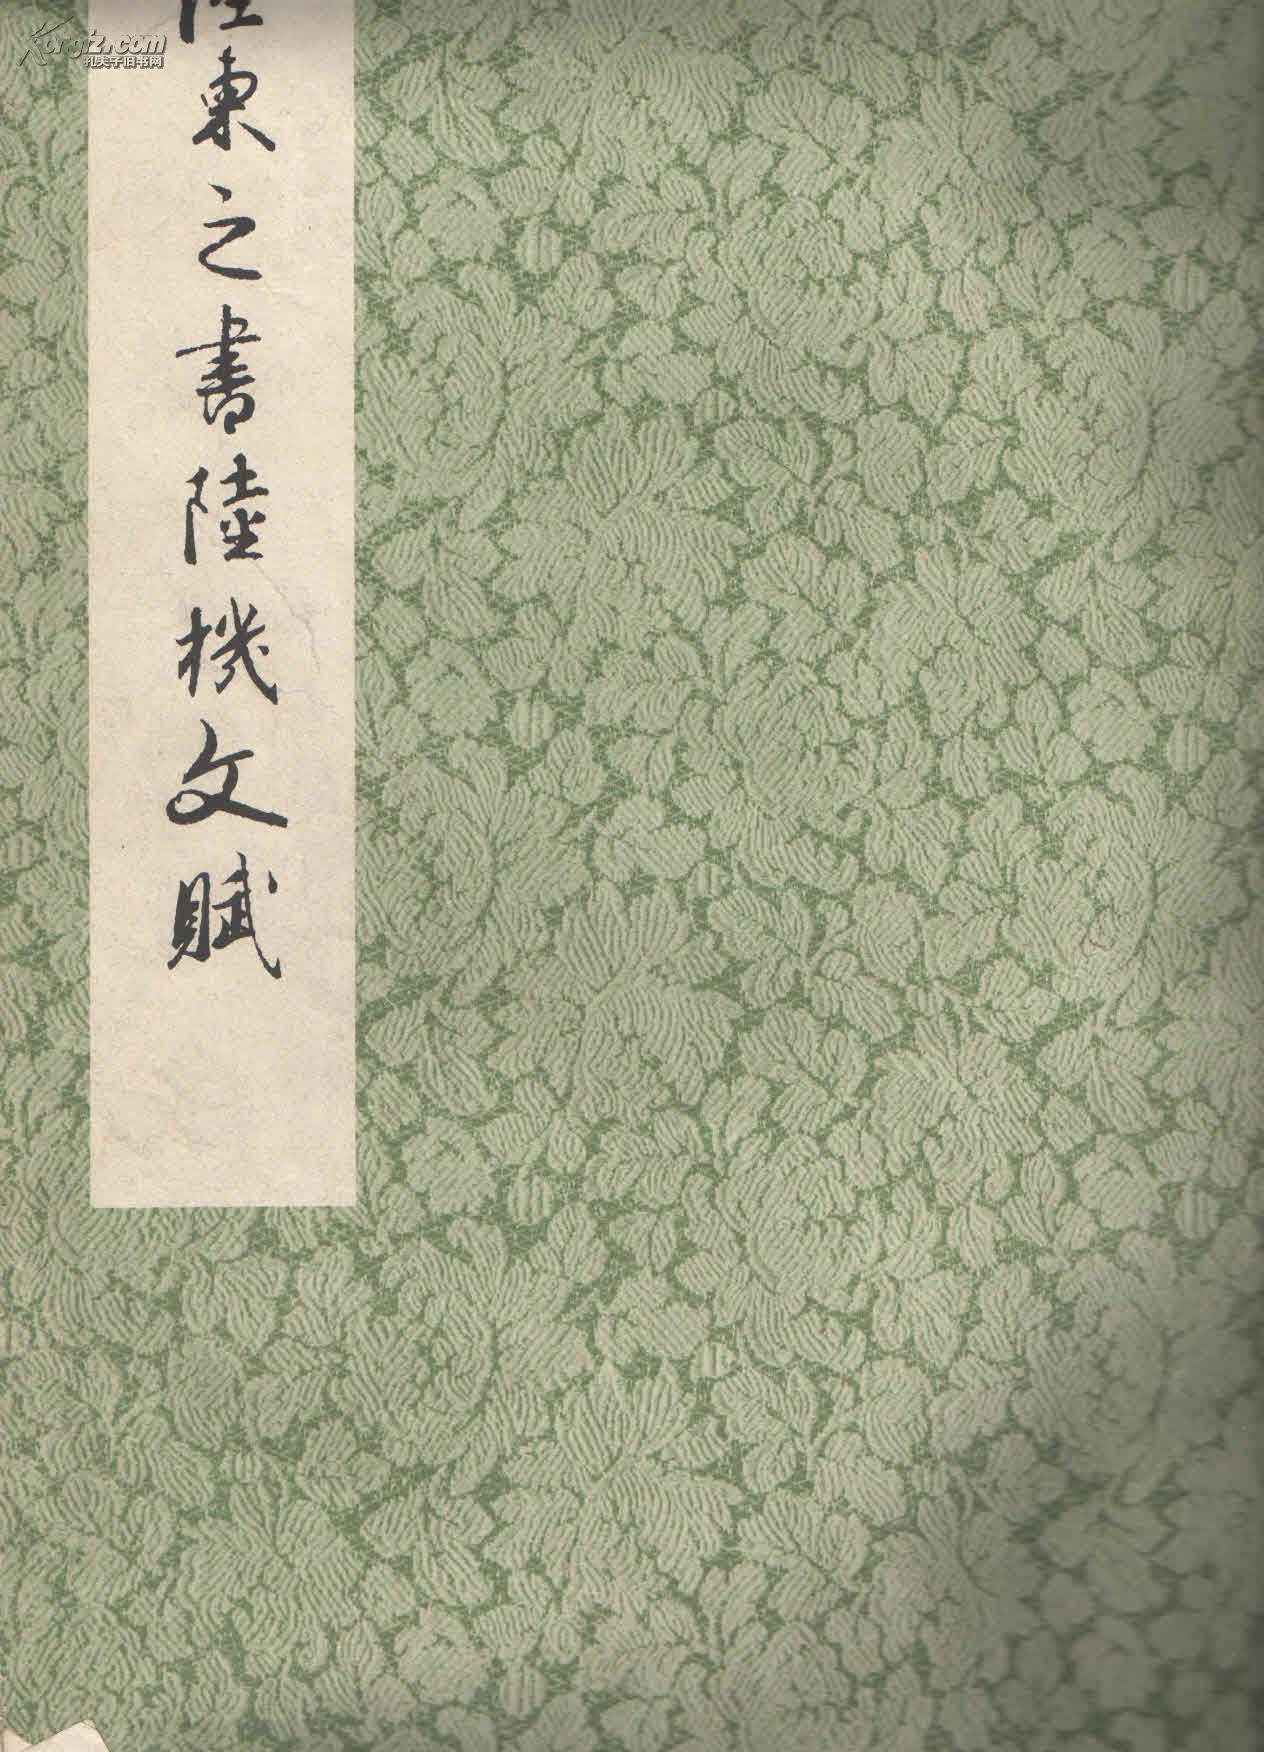 Kongfz.com
孔夫子旧书网
陸柬之書陸機文賦